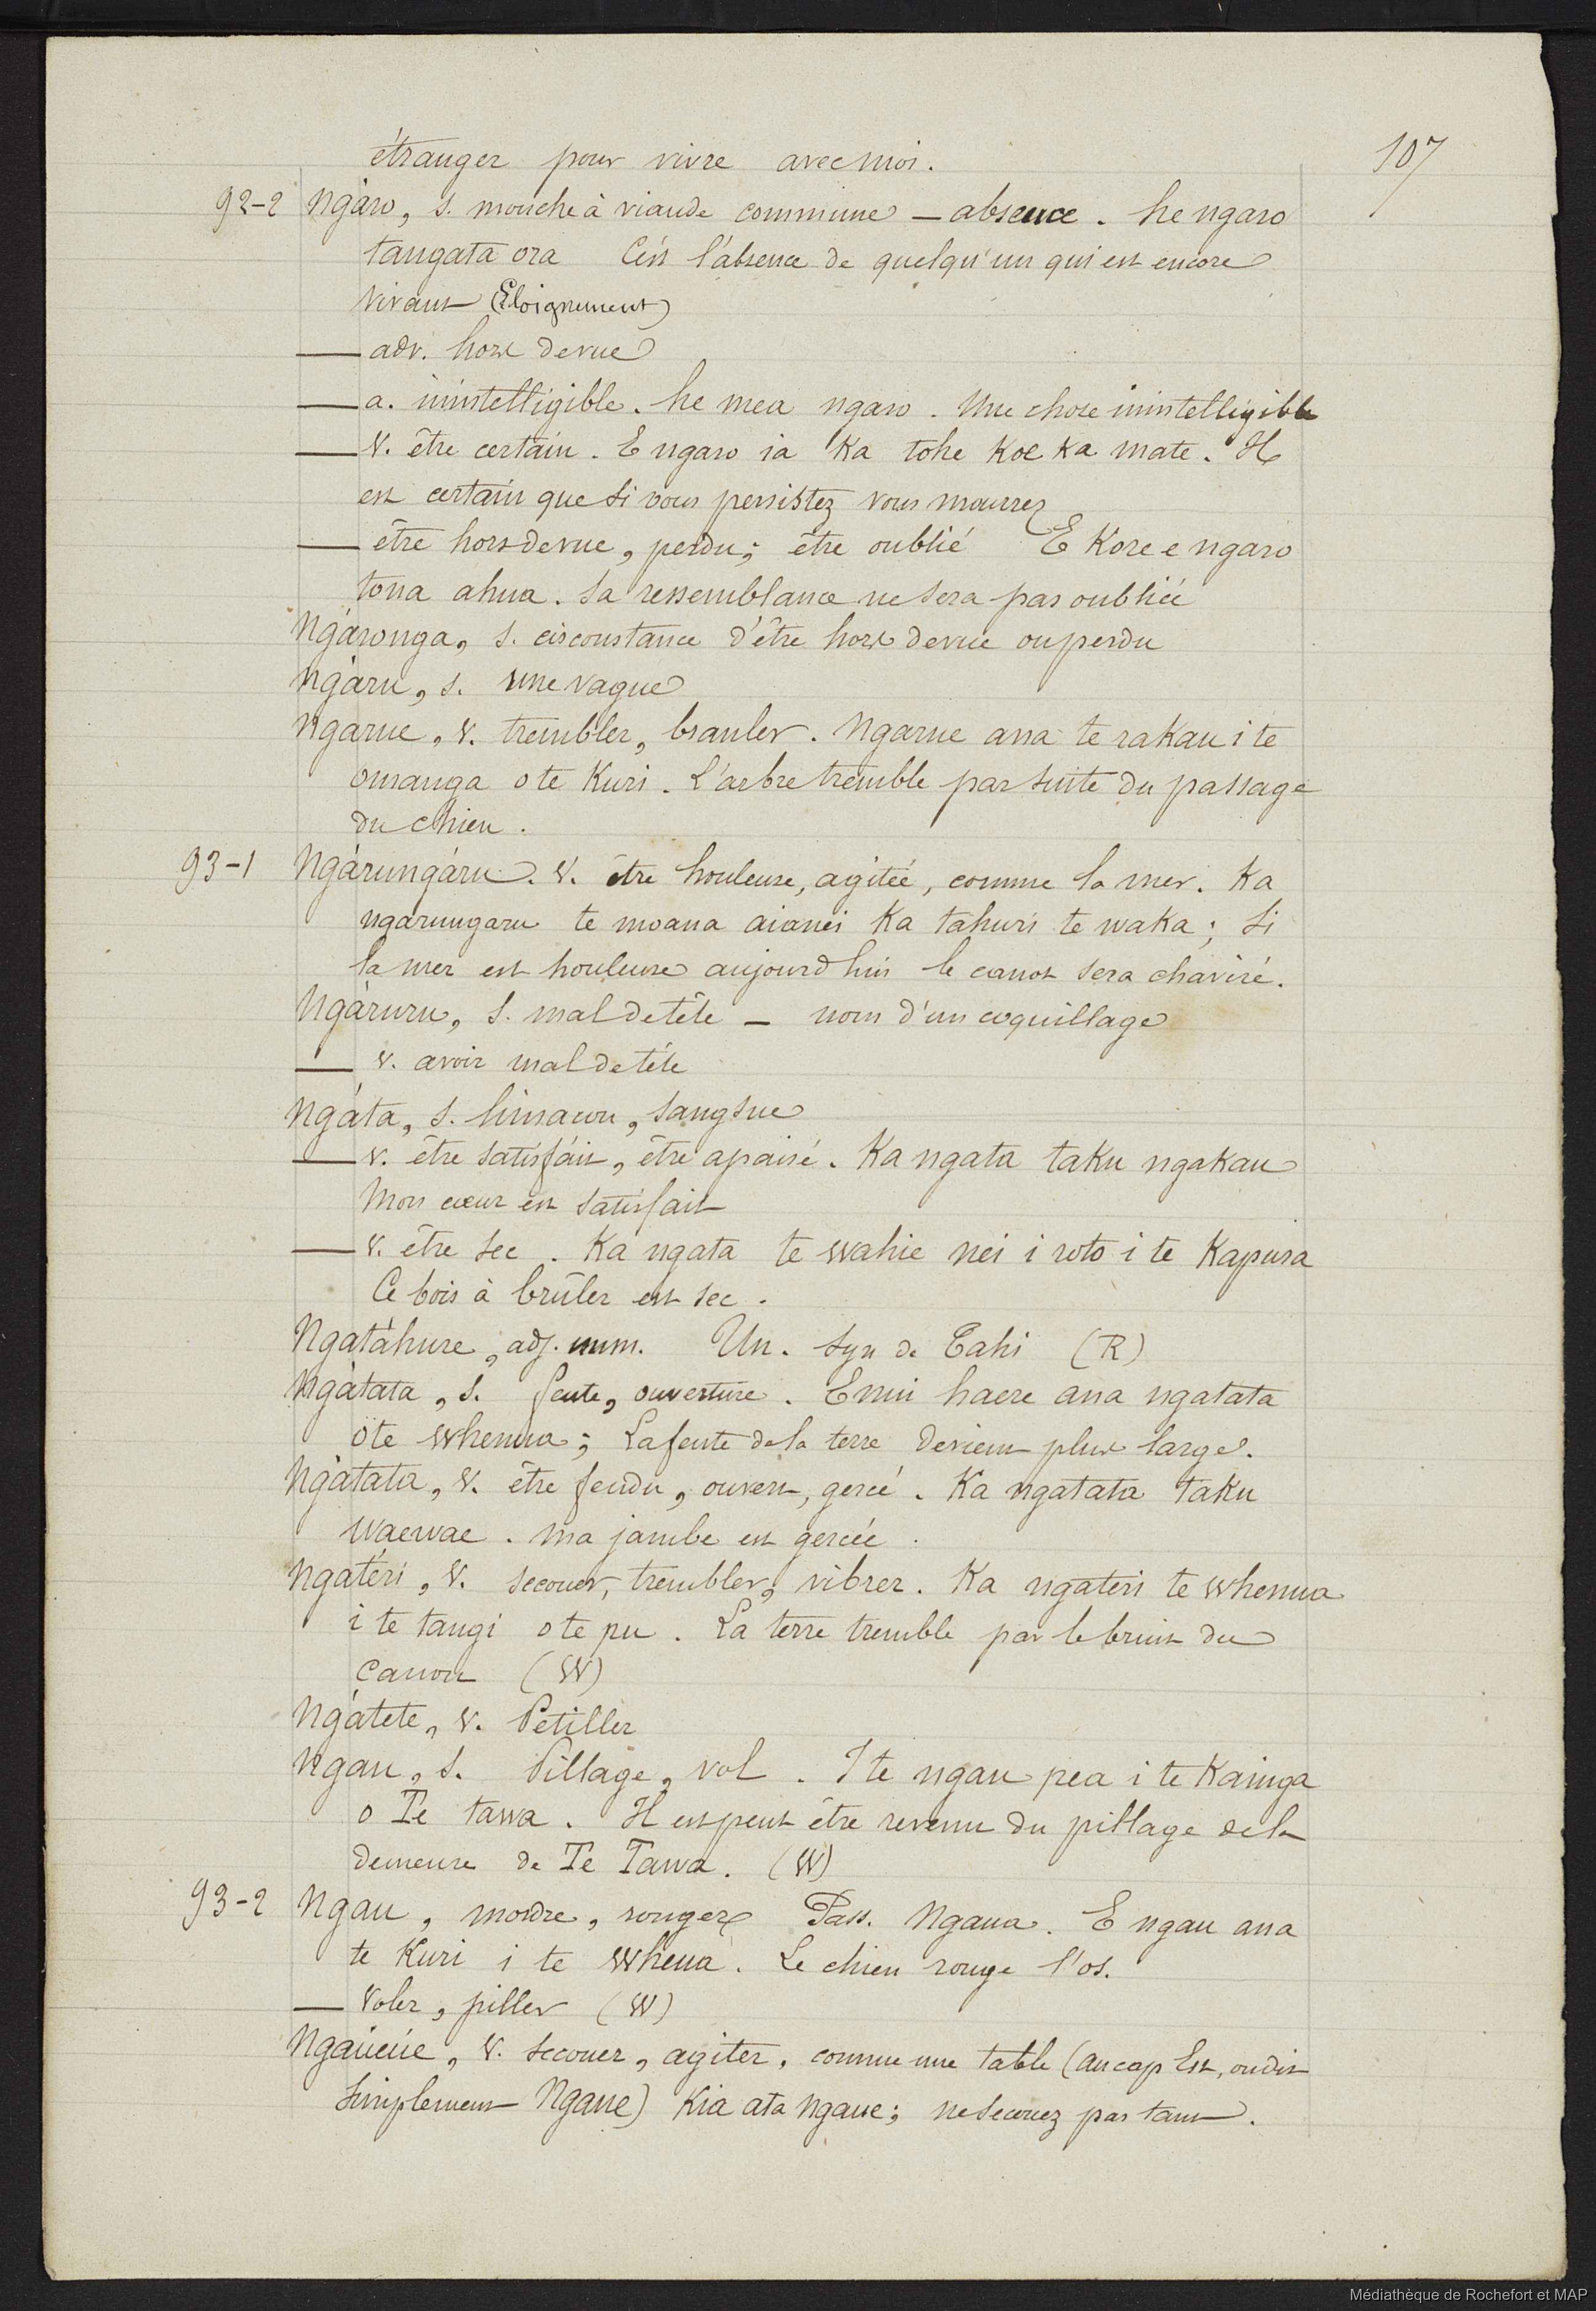 107
étranger pour vivre avec moi.
92-2 Ngàro, s. mouche à viande commune — absence. he ngaro
tangata ora C'est l'absence de quelqu'un qui est encore
vivant (Eloignement)
— adv. hors de vue
— a. inintelligible. he mea ngaro. Une chose inintelligible
— V. être certain. E ngaro ia Ka tohe Koe Ka mate. Il
est certain que si vous persistez vous mourrez
— être hors de vue, perdu; être oublié E Kore e ngaro
tona ahua. Sa ressemblance ne sera pas oubliée
Ngàronga, s. circonstance d'être hors de vue ou perdu
Ngàru, s. une vague
Ngarue, V. trembler, branler. Ngarue ana te rakau i te
omanga o te Kuri. L'arbre tremble par suite du passage
du chien.
93-1 Ngàrungàru. V. être houleuse, agitée, comme la mer. Ka
ngarungaru te moana aianei Ka tahuri te waka; Si
la mer est houleuse aujourd'hui le canot sera chaviré.
Ngàruru, s. mal de tête — nom d'un coquillage
— V. avoir mal de tête
Ngàta, s. limaçon, sangsue
— V. être satisfait, être apaisé. Ka ngata taku ngakau
Mon cœur est satisfait
— V. être sec. Ka ngata te wahie nei i roto i te Kapura
Ce bois à brûler est sec.
Ngatàhure, adj. num. Un. Syn de Tahi (R)
Ngàtata, s. fente, ouverture. E nui haere ana ngatata
o te whenua; La fente de la terre devient plus large.
Ngàtata, V. être fendu, ouvert, gercé. Ka ngatata taku
waewae. Ma jambe est gercée.
Ngatéri, V. secouer, trembler, vibrer. Ka ngateri te whenua
i te tangi o te pu. La terre tremble par le bruit du
canon (W)
Ngàtete, V. Pétiller
Ngau, s. Pillage, vol. I te ngau pea i te Kainga
o Te tawa. Il est peut être revenu du pillage de la
demeure de Te Tawa. (W)
93-2 Ngau, mordre, ronger Pass. Ngaua. E ngau ana
te Kuri i te wheua. Le chien ronge l'os.
— Voler, piller (W)
Ngaùeùe, V. secouer, agiter, comme une table (au cap Est, on dit
simplement Ngaue) Kia ata ngaue; ne secouez pas tant.
Médiathèque de Rochefort et MAP